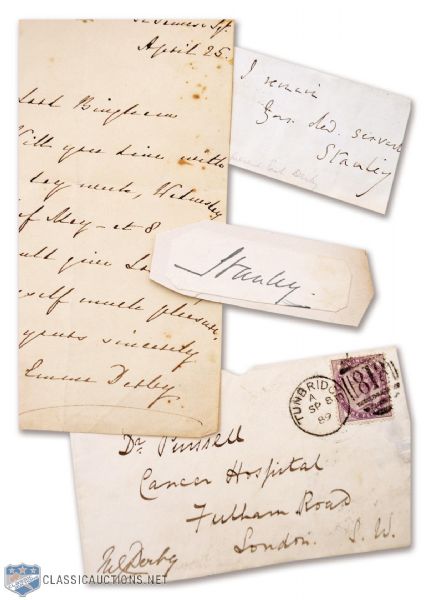 April 25.
Lord Bingham
Will you dine with
day week, Wednesday
of May - at 8
much pleasure,
yours sincerely
Emma Derby.
I remain
Your obed. servant
Stanley
Stanley.
TUNBRIDGE
A
SP 8
89
Dr Purssell
Cancer Hospital
Fulham Road
London. S. W.
Derby
CLASSICAUCTIONS.NET